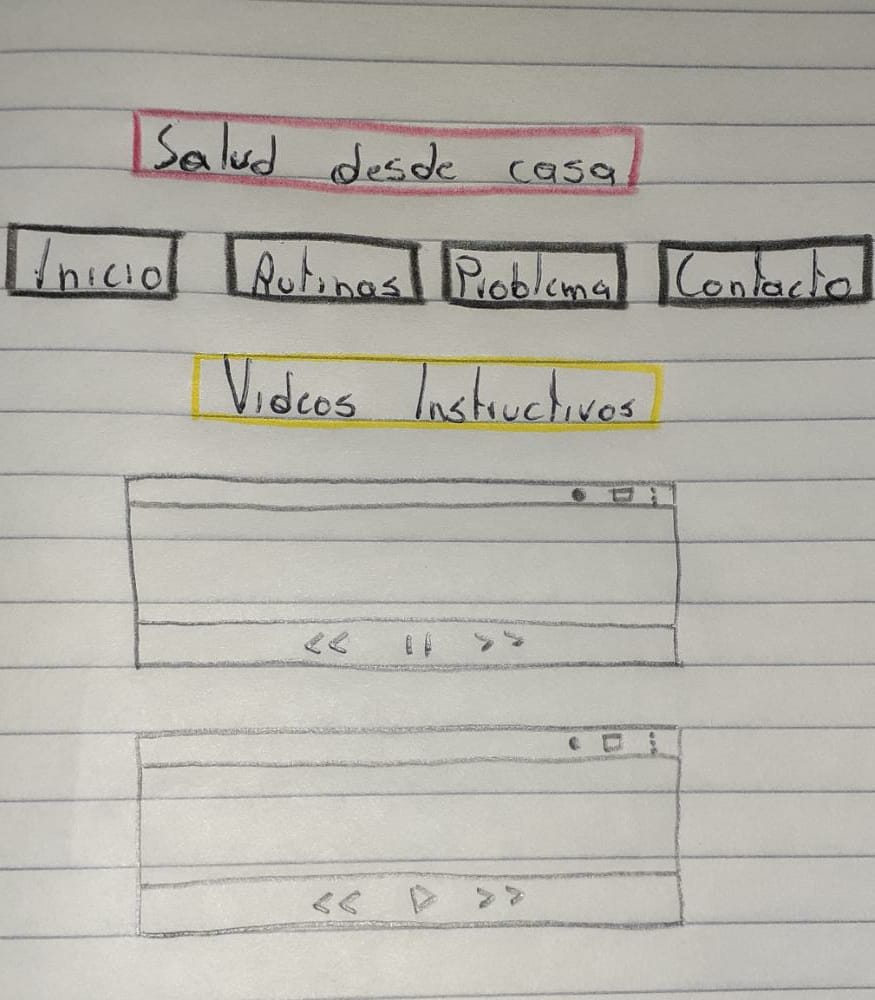 Salud desde casa
Inicio Rutinas Problema Contacto
Videos Instructivos
<< || >>
<< ▷ >>